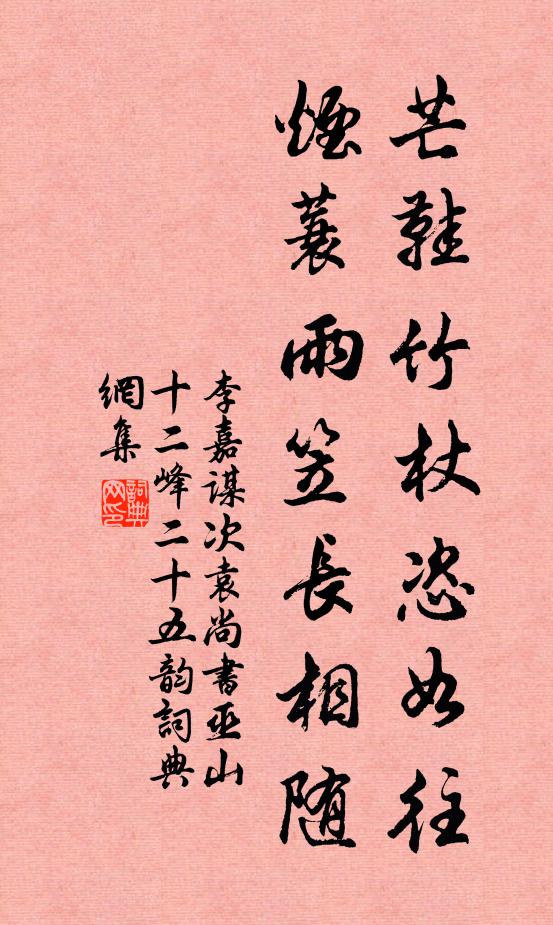 芒鞋竹杖恣如往
煙蓑雨笠長相随
李嘉謀次袁尚書巫山
十二峰二十五韵詞典
網集
詞典
网印